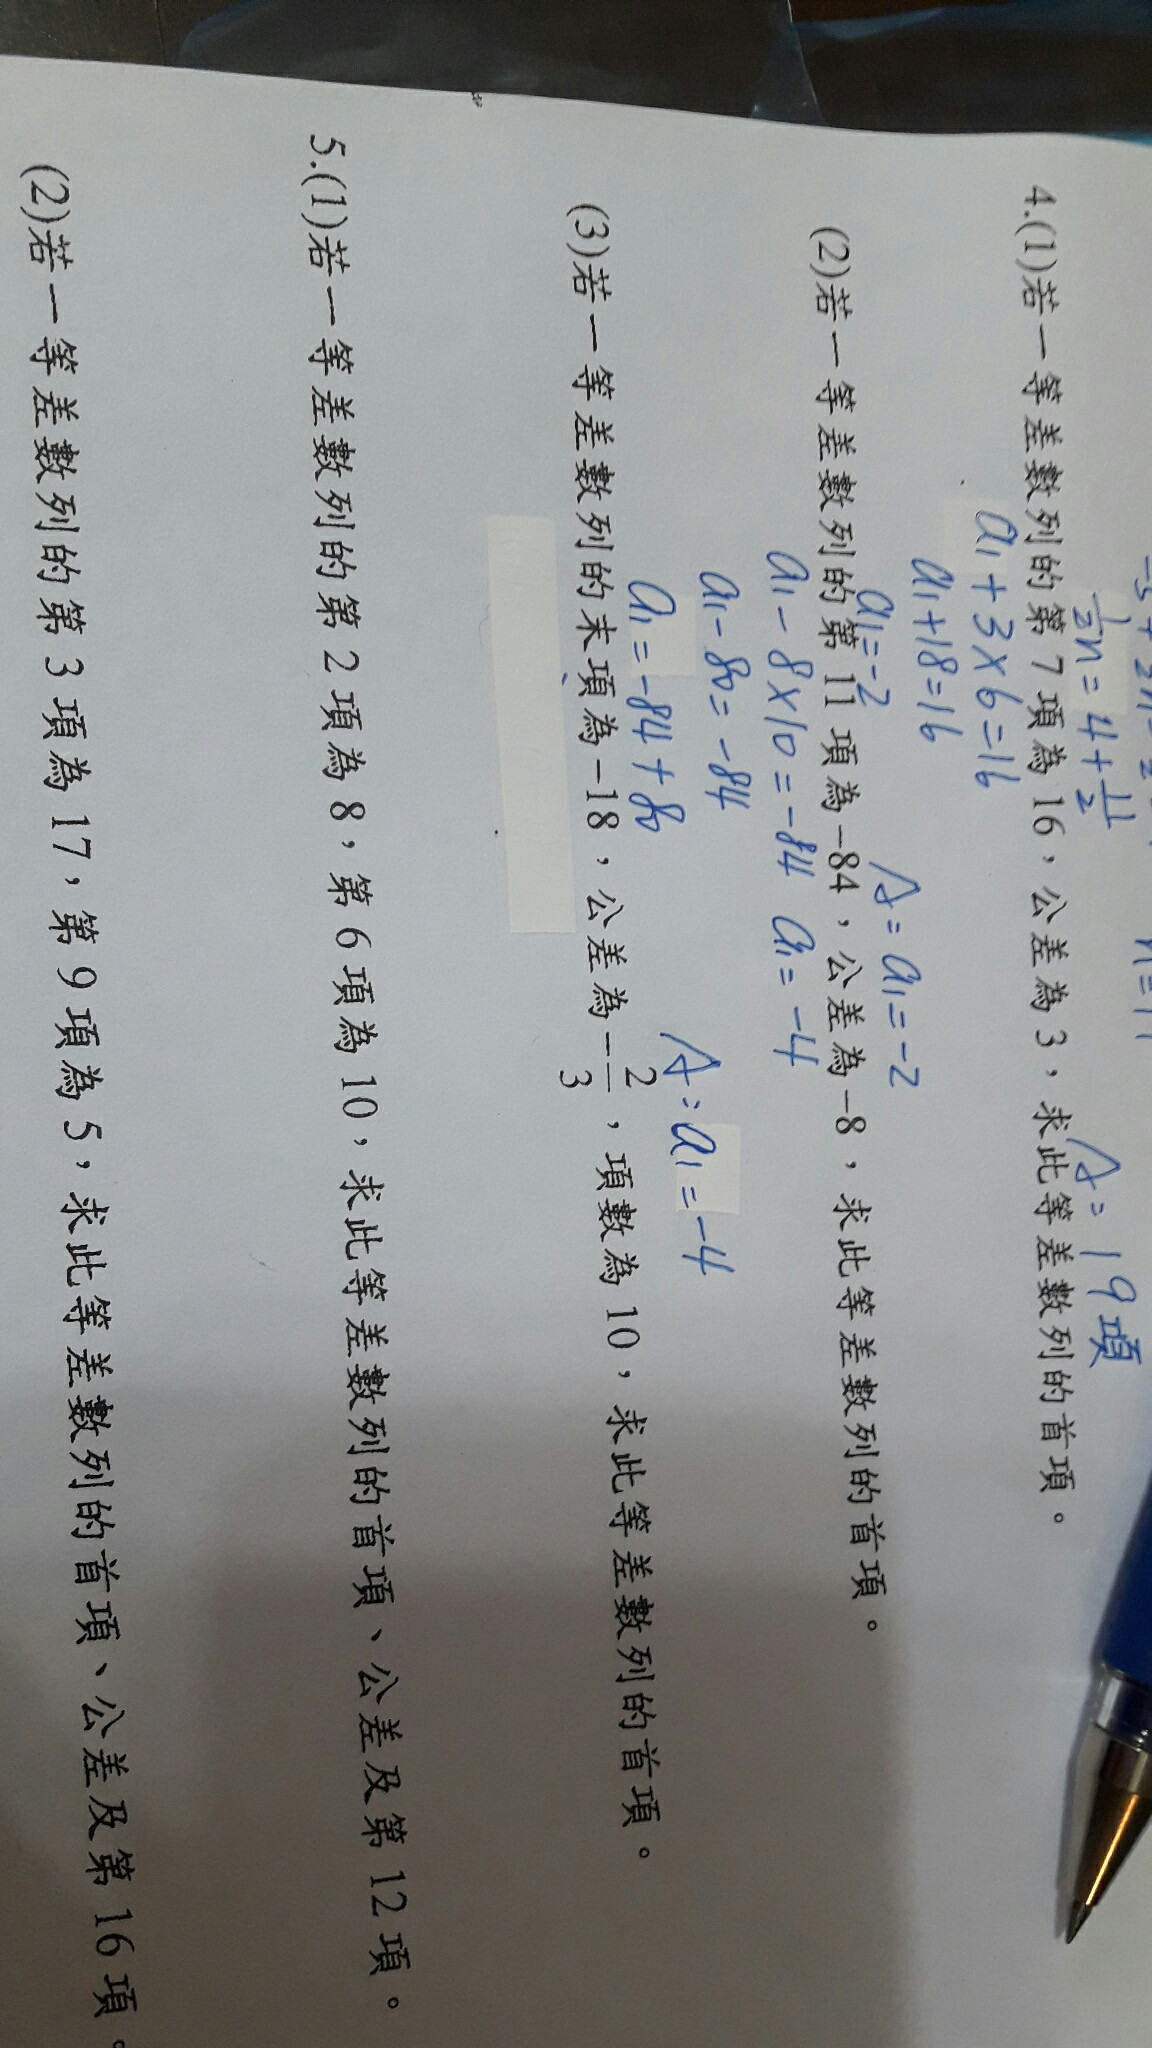 ½n=4+11/2
A:19項
4.(1)若一等差數列的第7項為16，公差為3，求此等差數列的首項。
a₁+3×6=16
a₁+18=16
a₁=-2
A:a₁=-2
(2)若一等差數列的第11項為-84，公差為-8，求此等差數列的首項。
a₁-8×10=-84 a₁=-4
a₁-80=-84
a₁=-84+80
A:a₁=-4
(3)若一等差數列的末項為-18，公差為-2/3，項數為10，求此等差數列的首項。
5.(1)若一等差數列的第2項為8，第6項為10，求此等差數列的首項、公差及第12項。
(2)若一等差數列的第3項為17，第9項為5，求此等差數列的首項、公差及第16項。